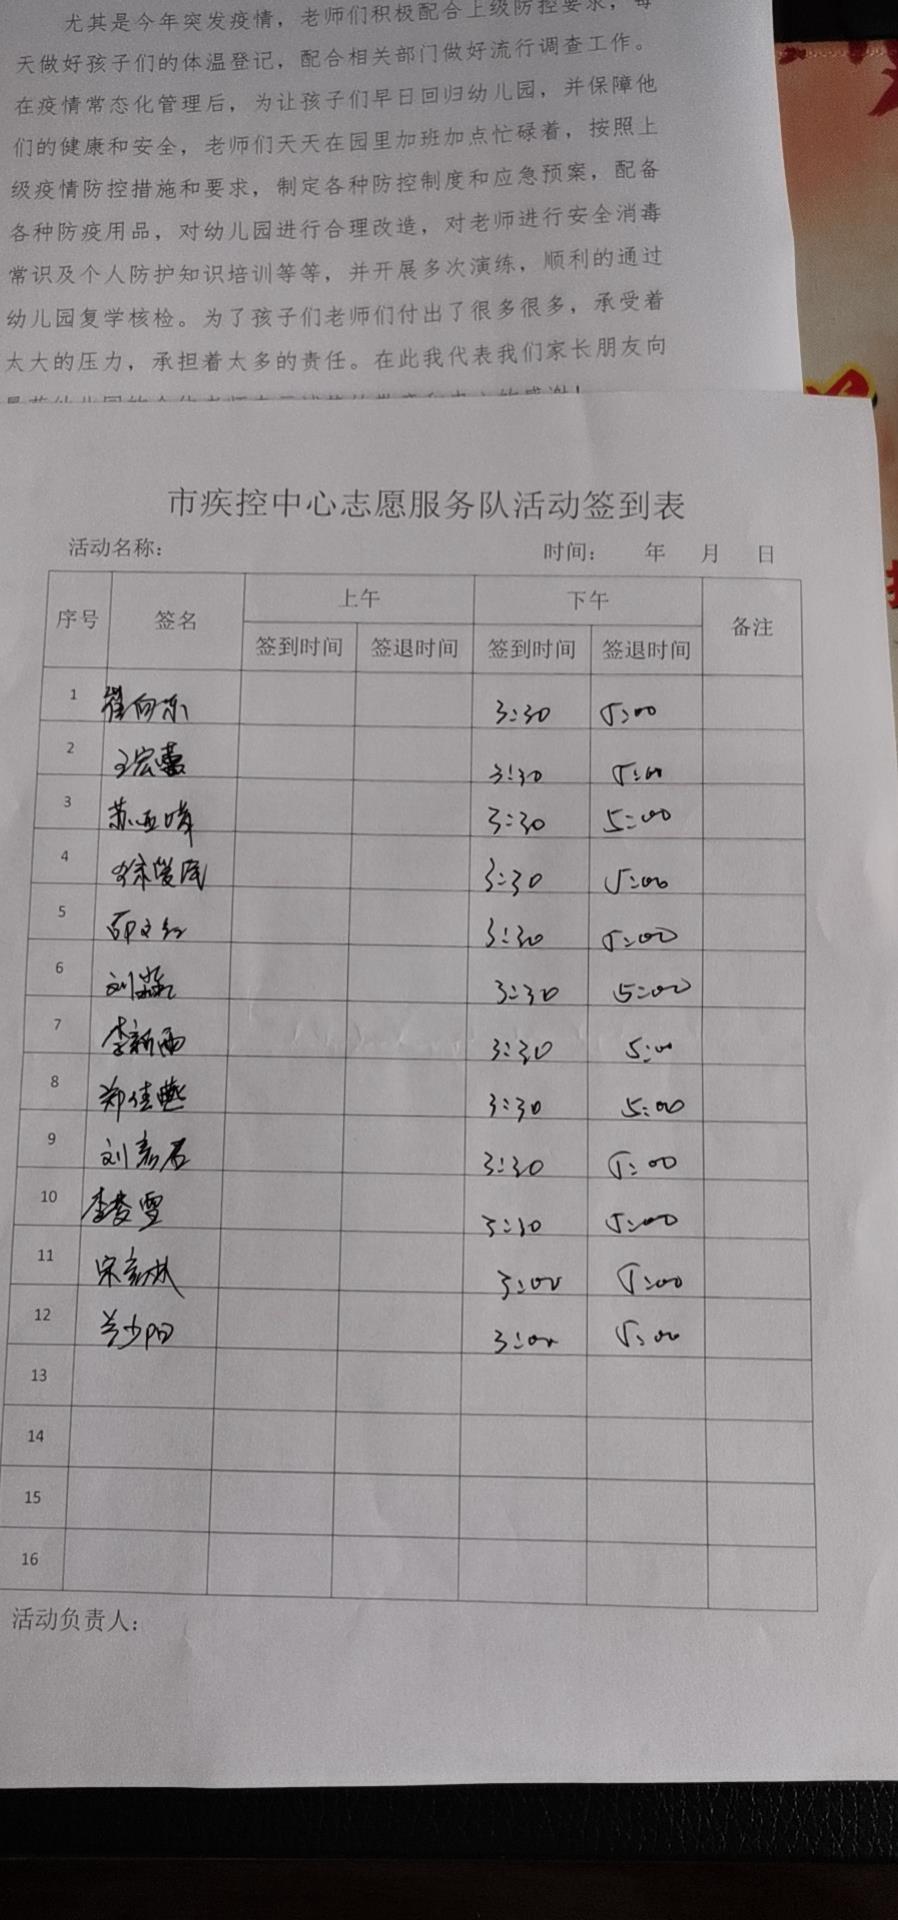 尤其是今年突发疫情，老师们积极配合上级防控要求，每
天做好孩子们的体温登记，配合相关部门做好流行调查工作。
在疫情常态化管理后，为让孩子们早日回归幼儿园，并保障他
们的健康和安全，老师们天天在园里加班加点忙碌着，按照上
级疫情防控措施和要求，制定各种防控制度和应急预案，配备
各种防疫用品，对幼儿园进行合理改造，对老师进行安全消毒
常识及个人防护知识培训等等，并开展多次演练，顺利的通过
幼儿园复学核检。为了孩子们老师们付出了很多很多，承受着
太大的压力，承担着太多的责任。在此我代表我们家长朋友向
市疾控中心志愿服务队活动签到表
活动名称： 时间： 年 月 日
序号 签名 上午 下午 备注
签到时间 签退时间 签到时间 签退时间
1 崔向东 3:30 5:00
2 王宏蕾 3:30 5:00
3 苏亚峰 3:30 5:00
4 徐爱民 3:30 5:00
5 邵文红 3:30 5:00
6 刘 3:30 5:00
7 李新雨 3:30 5:00
8 郑佳燕 3:30 5:00
9 刘彦君 3:30 5:00
10 李梦雪 3:30 5:00
11 宋彦林 3:00 5:00
12 兰少阳 3:00 5:00
13
14
15
16
活动负责人：